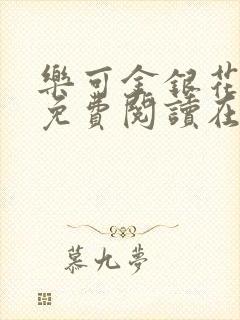 樂可金銀花
免費閱讀在
慕九夢